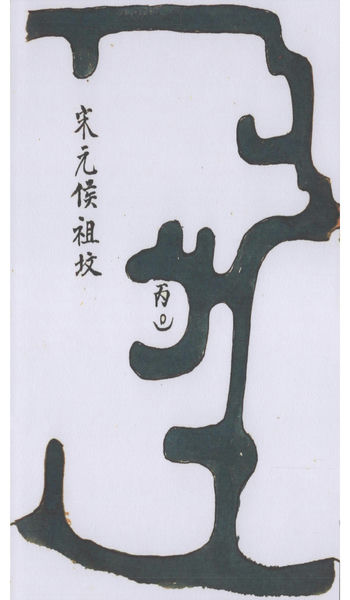 宋元侯祖坟
丙